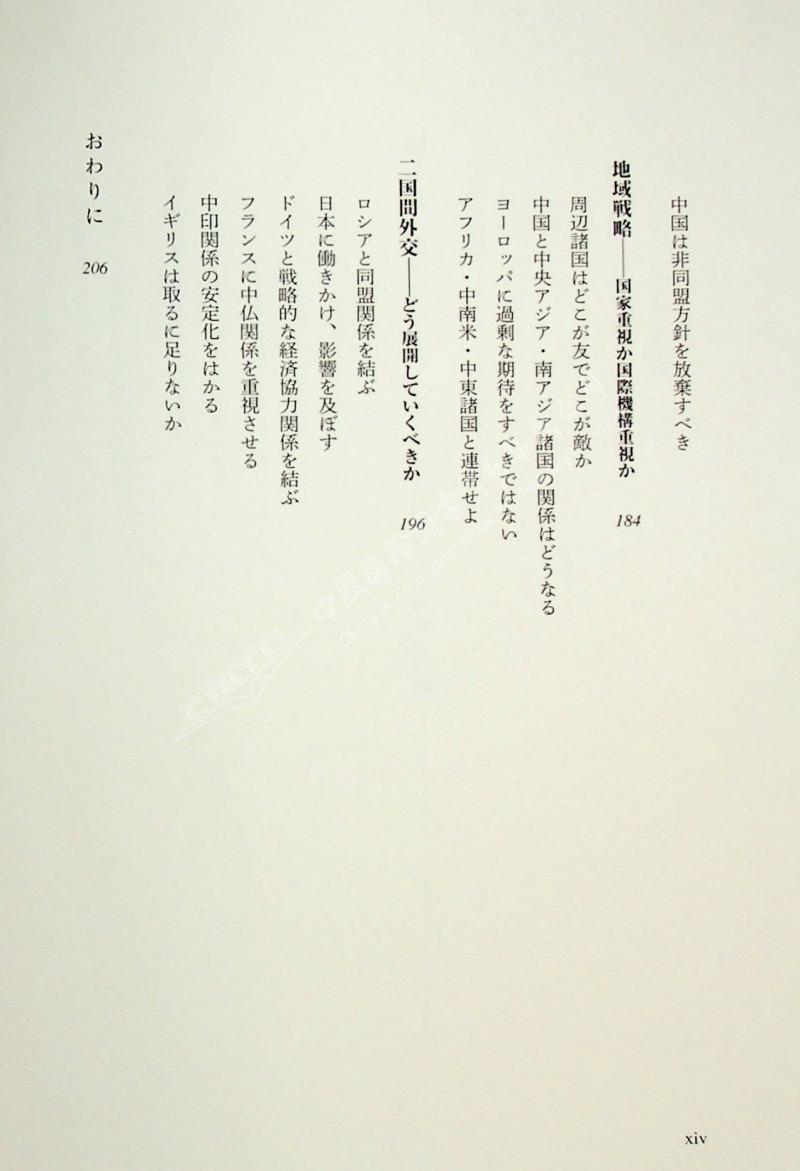 中国は非同盟方針を放棄すべき
地域戦略――国家重視か国際機構重視か 184
周辺諸国はどこが友でどこが敵か
中国と中央アジア・南アジア諸国の関係はどうなる
ヨーロッパに過剰な期待をすべきではない
アフリカ・中南米・中東諸国と連帯せよ
二国間外交――どう展開していくべきか 196
ロシアと同盟関係を結ぶ
日本に働きかけ、影響を及ぼす
ドイツと戦略的な経済協力関係を結ぶ
フランスに中仏関係を重視させる
中印関係の安定化をはかる
イギリスは取るに足りないか
おわりに 206
CIBTC
xiv